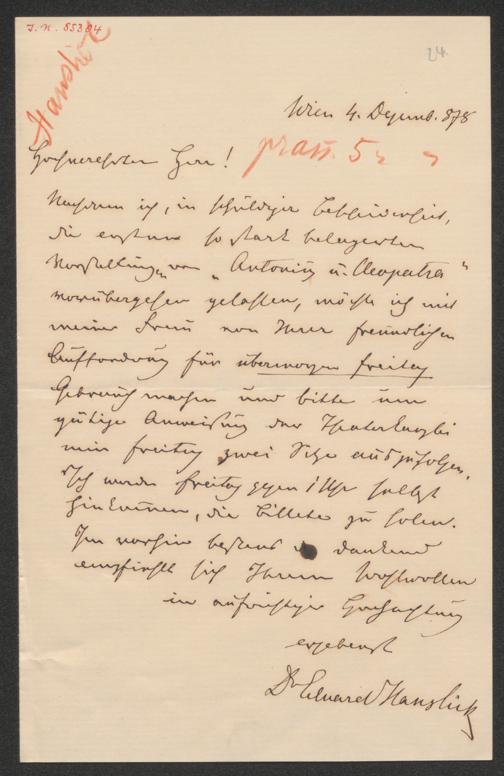 I.N. 85304
24.
Hanslick
Wien 4. Dezemb. 878
Hochverehrter Herr!
präs. 5
Nachdem ich, in schuldiger Bescheidenheit,
die ersten so stark belagerten
Vorstellungen von „Antonius u. Cleopatra“
vorübergehen gelassen, möchte ich mit
meiner Frau von Ihrer freundlichen
Aufforderung für übermorgen Freitag
Gebrauch machen und bitte um
gütige Anweisung der Theaterkanzlei
mir Freitag zwei Sitze auszufolgen.
Ich werde Freitag gegen 1 Uhr selbst
hinkommen, die Billete zu holen.
Im vorhin bestens dankend
empfiehlt sich Ihrem Wohlwollen
in aufrichtiger Hochachtung
ergebenst
Dr Eduard Hanslick